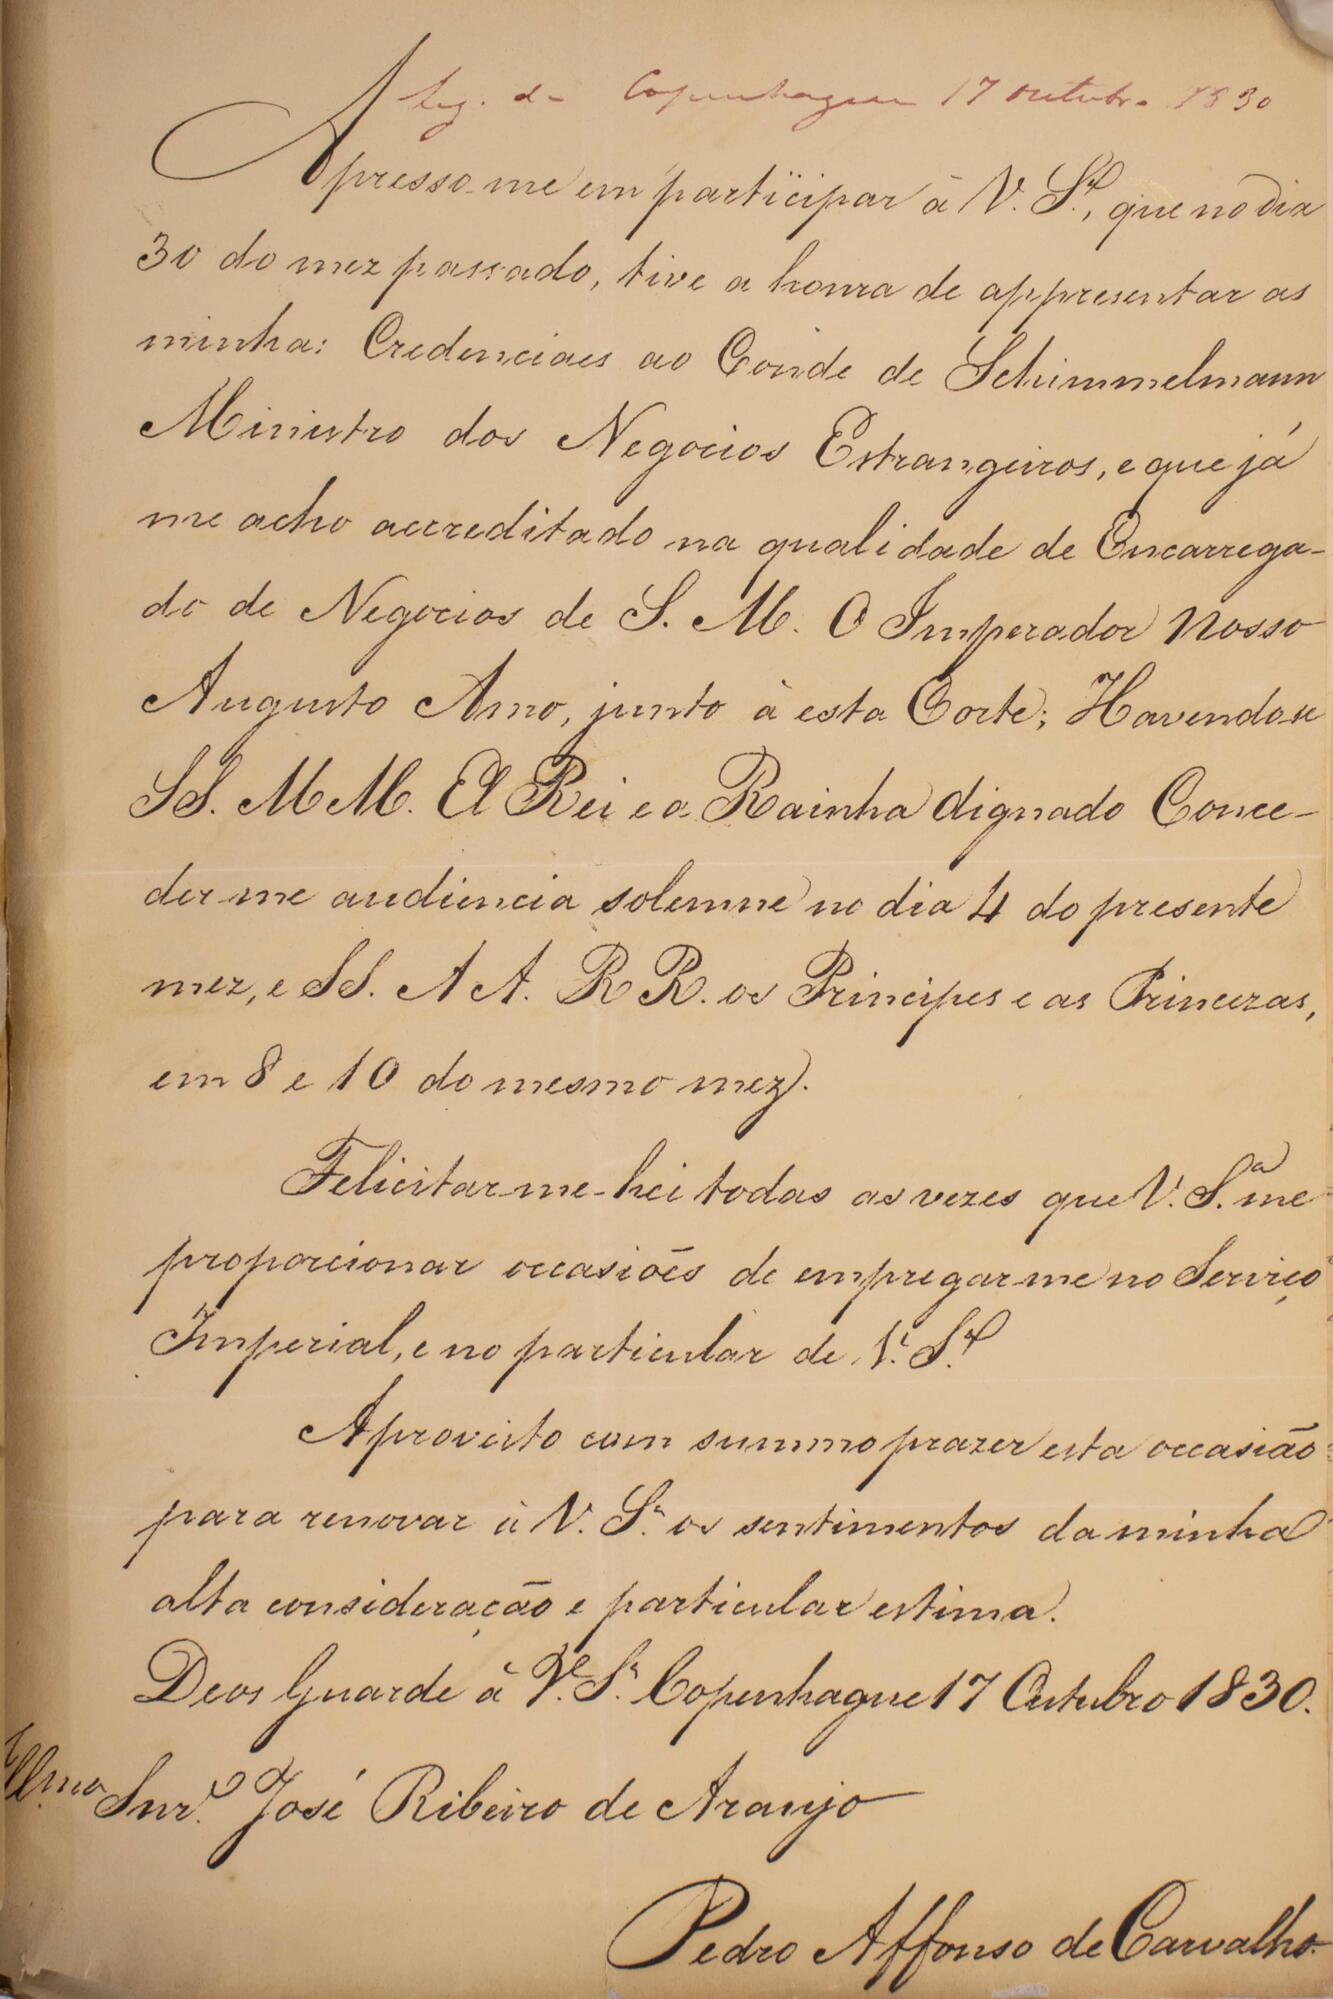 Leg. de Copenhague 17 Outubro 1830
Apresso-me em partiçipar à V. Sª., que no dia
30 do mez passado, tive a honra de appresentar as
minhas Credenciaes ao Conde de Schimmelmann
Ministro dos Negocios Estrangeiros, e que já
me acho accreditado na qualidade de Encarrega-
do de Negocios de S. M. O Imperador Nosso
Augusto Amo, junto à esta Corte; Havendo-se
SS. MM. El Rei e a Rainha dignado Conce-
der me audiencia solemne no dia 4 do presente
mez, e SS. AA. RR. os Principes e as Princezas,
em 8 e 10 do mesmo mez.
Felicitar-me-hei todas as vezes que V. Sª. me
proporcionar occasiões de empregar me no Serviço
Imperial, e no particular de V. Sª.
Aproveito com summo prazer esta occasião
para renovar à V. Sª. os sentimentos da minha
alta consideração e particular estima.
Deos Guarde à V. Sª. Copenhague 17 Outubro 1830.
Illmo Snr. José Ribeiro de Araujo
Pedro Affonso de Carvalho.